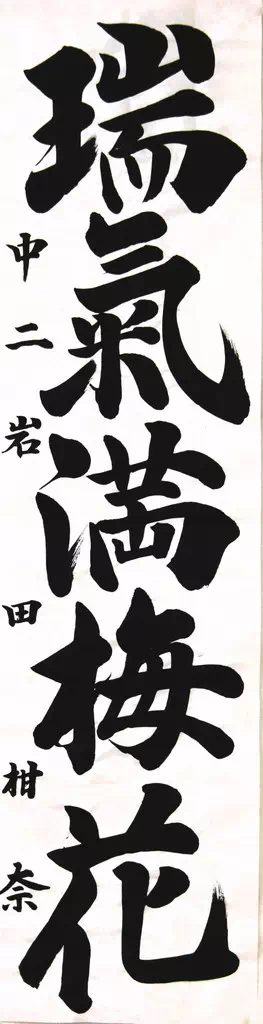 瑞氣満梅花
中二 岩田柑奈